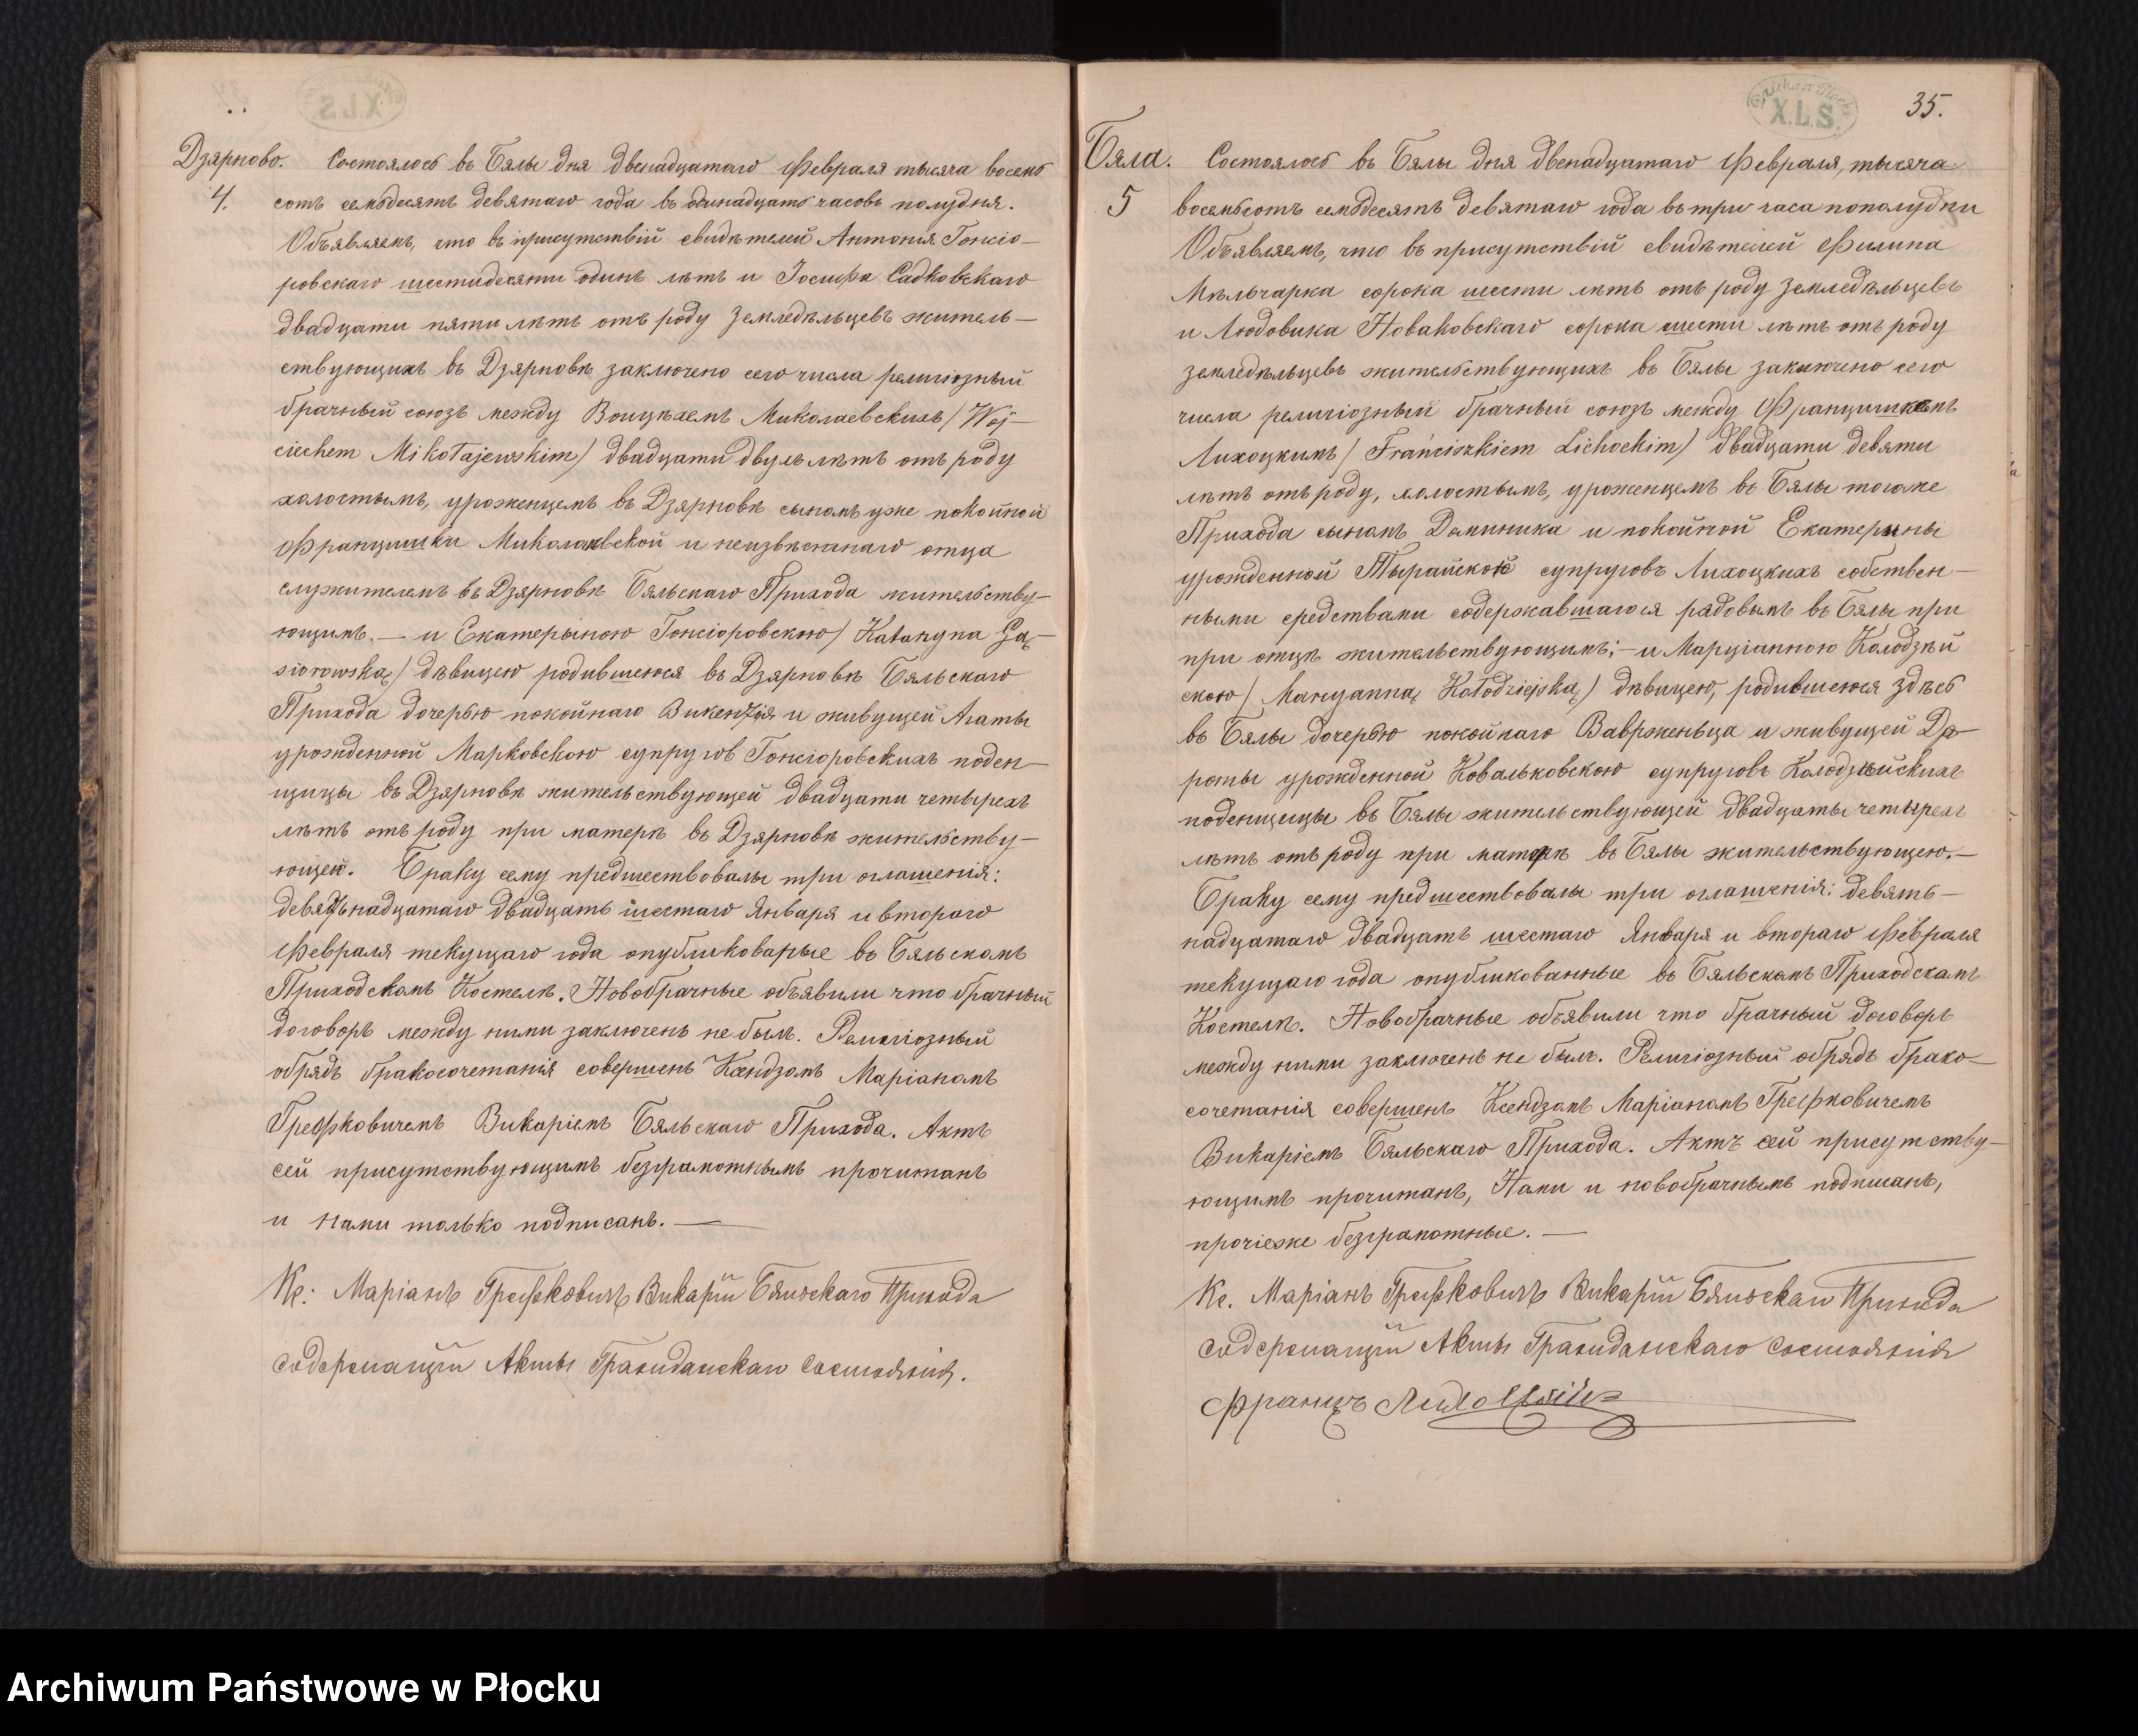 Дзярново.
4.
Состоялось въ Бялы дня двенадцатаго Февраля тысяча восемь
сотъ семьдесятъ девятаго года въ одинадцать часовъ полудня.
Объявляемъ, что въ присутствій свидѣтелей Антонія Гонсіо-
ровскаго шестидесяти одинъ лѣтъ и Іосифа Садковскаго
двадцати пяти лѣтъ отъ роду земледѣльцевъ житель-
ствующихъ въ Дзярновѣ заключено сего числа религіозный
брачный союзъ между Воицѣхемъ Миколаевскимъ / Woj-
ciechem Mikołajewskim) двадцати двухъ лѣтъ отъ роду
холостымъ, уроженцемъ въ Дзярновѣ сыномъ уже покойной
Францишки Миколаевской и неизвѣстнаго отца
служителемъ въ Дзярновѣ Бяльскаго Прихода жительству-
ющимъ. — и Екатерыною Гонсіоровскою / Katarzyna Gą-
siorowską / дѣвицею родившеюся въ Дзярновѣ Бяльскаго
Прихода дочерью покойнаго Викентія и живущей Агаты
урожденной Марковскою супруговъ Гонсіоровскихъ поден-
щицы въ Дзярновѣ жительствующей двадцати четырехъ
лѣтъ отъ роду при матерѣ въ Дзярновѣ жительству-
ющей. Браку сему предшествовалы три оглашенія:
девятьнадцатаго двадцать шестаго Января и втораго
Февраля текущаго года опубликованые въ Бяльскомъ
Приходскомъ Костелѣ. Новобрачные объявили что брачный
договоръ между ними заключенъ не былъ. Религіозный
обрядъ бракосочетанія совершенъ Ксендзомъ Маріаномъ
Грефковичемъ Викаріемъ Бяльскаго Прихода. Актъ
сей присутствующимъ безграмотнымъ прочитанъ
и Нами только подписанъ. —
Кс: Маріанъ Грефковичъ Викарій Бяльскаго Прихода
содержащій Акты Гражданскаго Состоянія.
X.L.S.
35.
Бяла.
5
Состоялось въ Бялы дня двенадцатаго Февраля, тысяча
восемьсотъ семьдесятъ девятаго года въ три часа пополудни
Объявляемъ, что въ присутствій свидѣтелей Филипа
Мѣльчарка сорока шести лѣтъ отъ роду земледѣльцевъ
и Людовика Новаковскаго сорока шести лѣтъ отъ роду
земледѣльцевъ жительствующихъ въ Бялы заключено сего
числа религіозный брачный союзъ между Францишкемъ
Лихоцкимъ / Franciszkiem Lichockim) двадцати девяти
лѣтъ отъ роду, холостымъ, уроженцемъ въ Бялы тогоже
Прихода сыномъ Доминика и покойной Екатерыны
урожденной Тырайской супруговъ Лихоцкихъ собствен-
ными средствами содержавшагося рядовымъ въ Бялы при
при отцѣ жительствующимъ; — и Марціанною Колодзѣй
скою / Maryanną Kołodziejską) дѣвицею, родившеюся здѣсь
въ Бялы дочерью покойнаго Вавржиньца и живущей До-
роты урожденной Ковальковскою супруговъ Колодзѣйскихъ
поденщицы въ Бялы жительствующей двадцаты четырехъ
лѣтъ отъ роду при матерѣ въ Бялы жительствующею. —
Браку сему предшествовалы три оглашенія: девять-
надцатаго двадцать шестаго Января и втораго Февраля
текущаго года опубликованные въ Бяльскомъ Приходскомъ
Костелѣ. Новобрачные объявили что брачный договоръ
между ними заключенъ не былъ. Религіозный обрядъ брако-
сочетанія совершенъ Ксендзомъ Маріаномъ Грефковичемъ
Викаріемъ Бяльскаго Прихода. Актъ сей присутству-
ющимъ прочитанъ, Нами и новобрачнымъ подписанъ,
прочіеже безграмотные. —
Кс. Маріанъ Грефковичъ Викарій Бяльскаго Прихода
содержащій Акты Гражданскаго Состоянія
Францъ Лихоцкій
Archiwum Państwowe w Płocku